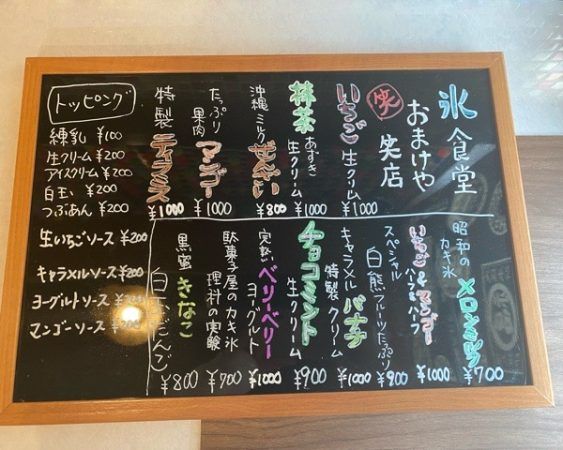 氷食堂
おまけや
笑店
笑
いちご
生クリーム
¥1000
抹茶
あずき
生クリーム
¥1000
沖縄ミルク
ぜんざい
¥800
たっぷり
果肉
マンゴー
¥1000
特製
ティラミス
¥1000
昭和の
カキ氷
¥700
いちご&マンゴー
ハーフ&ハーフ
¥1000
スペシャル
白熊フルーツたっぷり
¥900
キャラメルバナナ
特製クリーム
¥1000
チョコミント
生クリーム
¥900
完熟ベリーベリー
ヨーグルト
¥1000
駄菓子屋のカキ氷
理科の実験
¥700
黒蜜きなこ
白玉だんご
¥800
トッピング
練乳 ¥100
生クリーム ¥200
アイスクリーム ¥200
白玉 ¥200
つぶあん ¥200
生いちごソース ¥200
キャラメルソース ¥200
ヨーグルトソース
マンゴーソース ¥200